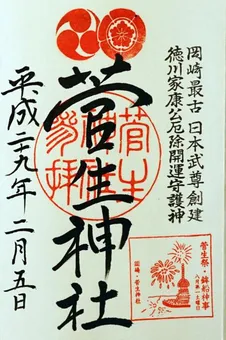 岡崎最古 日本武尊創建
徳川家康公厄除開運守護神
菅生神社
参拝
平成二十九年 二月五日
菅生祭・鉾船神事
岡崎・菅生神社